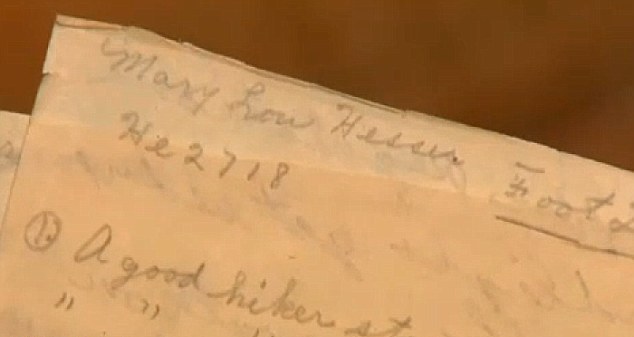 Mary Lou Hesser
He 2718
Foot
① A good hiker st
" "